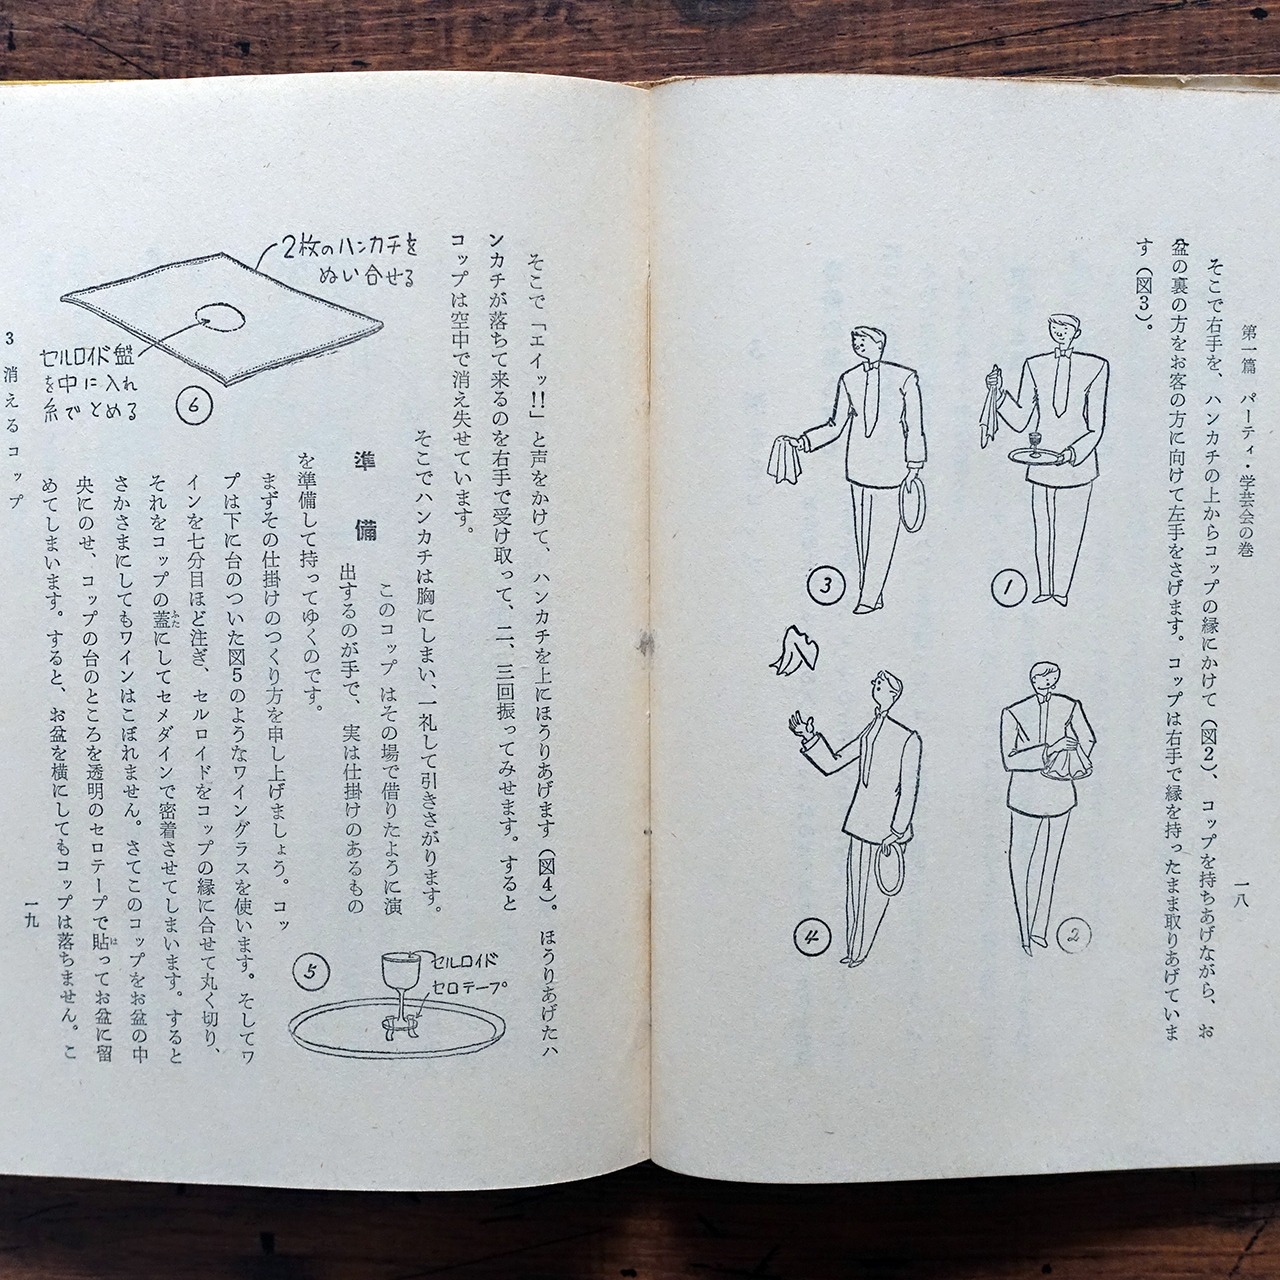 第一篇 パーティ・学芸会の巻
一八
そこで右手を、ハンカチの上からコップの縁にかけて（図2）、コップを持ちあげながら、お
盆の裏の方をお客の方に向けて左手をさげます。コップは右手で縁を持ったまま取りあげていま
す（図3）。
1
2
3
4
そこで「エイッ!!」と声をかけて、ハンカチを上にほうりあげます（図4）。ほうりあげたハ
ンカチが落ちて来るのを右手で受け取って、二、三回振ってみせます。すると
コップは空中で消え失せています。
そこでハンカチは胸にしまい、一礼して引きさがります。
準備
このコップはその場で借りたように演
出するのが手で、実は仕掛けのあるもの
を準備して持ってゆくのです。
まずその仕掛けのつくり方を申し上げましょう。コッ
プは下に台のついた図5のようなワイングラスを使います。そしてワ
インを七分目ほど注ぎ、セルロイドをコップの縁に合せて丸く切り、
それをコップの蓋にしてセメダインで密着させてしまいます。すると
ふた
さかさまにしてもワインはこぼれません。さてこのコップをお盆の中
央にのせ、コップの台のところを透明のセロテープで貼ってお盆に留
は
めてしまいます。すると、お盆を横にしてもコップは落ちません。こ
5
セルロイド
セロテープ
2枚のハンカチを
ぬい合せる
セルロイド盤
を中に入れ
糸でとめる
6
3 消えるコップ
一九